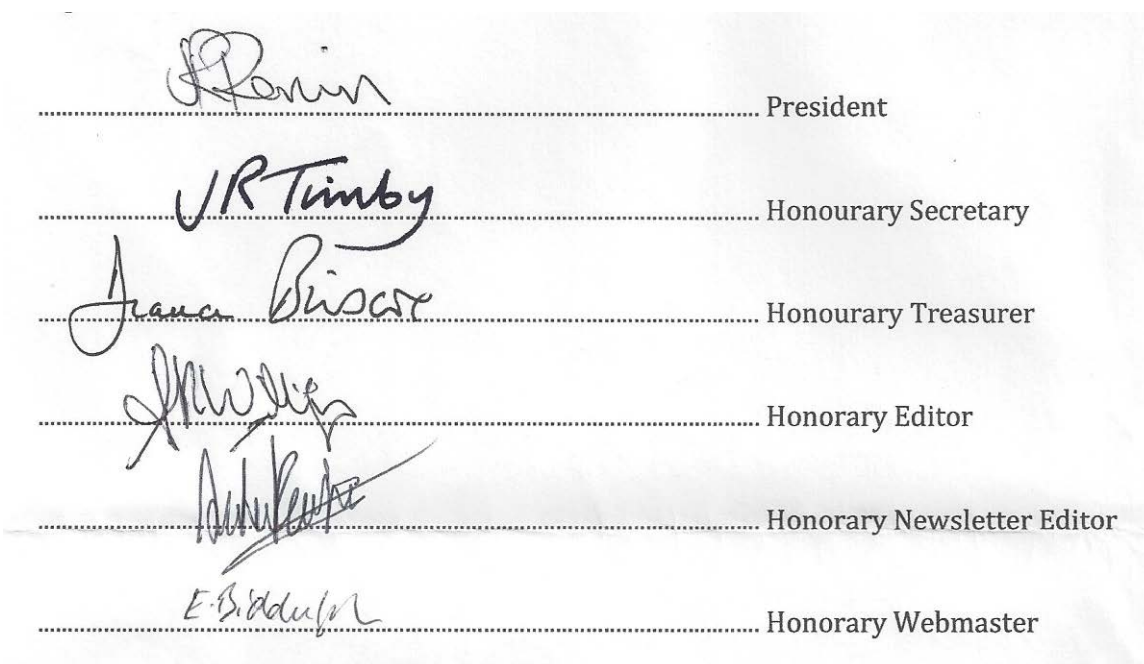 President
JR Timby Honourary Secretary
Briscoe Honourary Treasurer
Honorary Editor
Honorary Newsletter Editor
E. Biddulph Honorary Webmaster